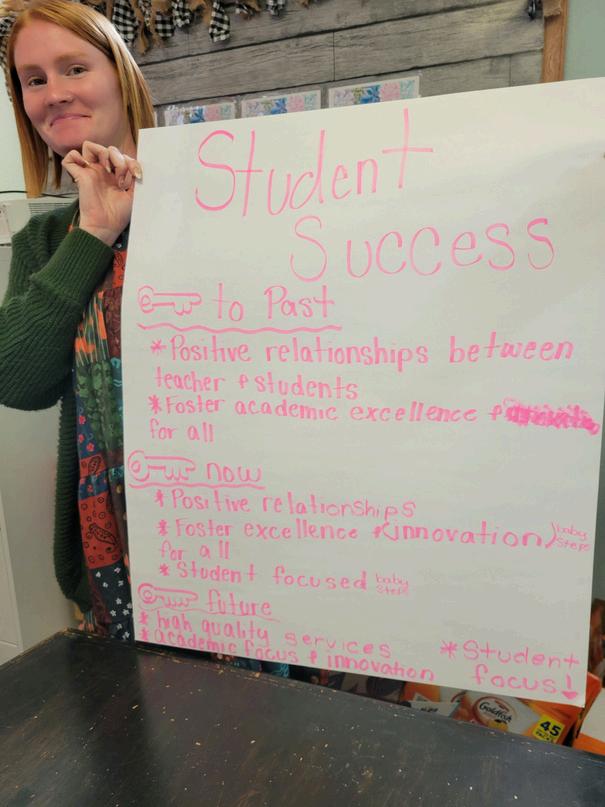 Student
Success
to Past
*Positive relationships between
teacher & students
*Foster academic excellence &
for all
now
*Positive relationships
*Foster excellence &(innovation) baby
steps
for all
*Student focused baby
steps
future
*high quality services
*academic focus & innovation
*Student
focus!
Goldfish
45